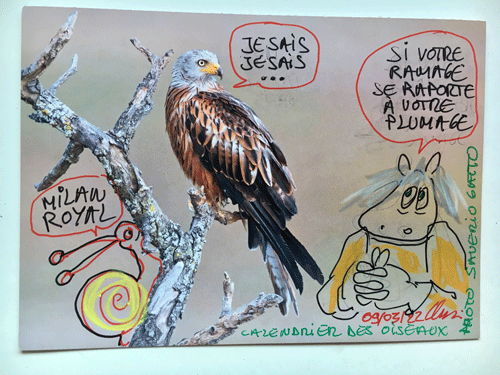 JE SAIS
JE SAIS
...
SI VOTRE
RAMAGE
SE RAPORTE
À VOTRE
PLUMAGE
MILAN
ROYAL
09/03/22
CALENDRIER DES OISEAUX
PHOTO SAVERIO GATTO